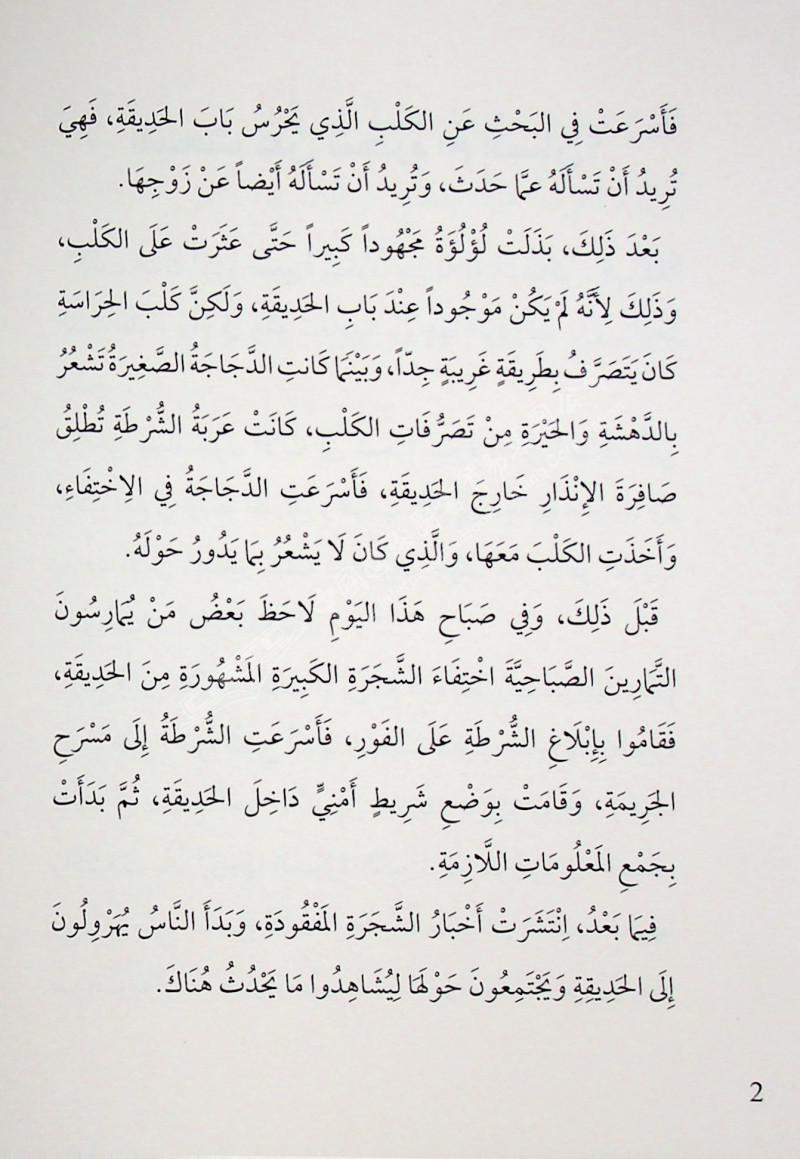 فَأَسْرَعَتْ فِي البَحْثِ عَنِ الكَلْبِ الَّذِي يَحْرُسُ بَابَ الحَدِيقَةِ، فَهِيَ
تُرِيدُ أَنْ تَسْأَلَهُ عمَّا حَدَثَ، وَتُرِيدُ أَنْ تَسْأَلَهُ أَيْضاً عَنْ زَوْجِهَا.
بَعْدَ ذَلِكَ، بَذَلَتْ لُؤْلُؤَةُ مَجْهُوداً كَبِيراً حَتَّى عَثَرَتْ عَلَى الكَلْبِ،
وَذَلِكَ لِأَنَّهُ لَمْ يَكُنْ مَوْجُوداً عِنْدَ بَابِ الحَدِيقَةِ، وَلَكِنَّ كَلْبَ الحِرَاسَةِ
كَانَ يَتَصَرَّفُ بِطَرِيقَةٍ غَرِيبَةٍ جِدّاً، وَبَيْنَمَا كَانتِ الدَّجَاجَةُ الصَّغِيرَةُ تَشْعُرُ
بِالدَّهْشَةِ وَالحَيْرَةِ مِنْ تَصَرُّفَاتِ الكَلْبِ، كَانَتْ عَرَبَةُ الشُّرْطَةِ تُطْلِقُ
صَافِرَةَ الإِنْذَارِ خَارِجَ الحَدِيقَةِ، فَأَسْرَعَتِ الدَّجَاجَةُ فِي الِاخْتِفَاءِ،
وَأَخَذَتِ الكَلْبَ مَعَهَا، وَالَّذِي كَانَ لَا يَشْعُرُ بِمَا يَدُورُ حَوْلَهُ.
قَبْلَ ذَلِكَ، وَفِي صَبَاحِ هَذَا اليَوْمِ لَاحَظَ بَعْضُ مَنْ يُمَارِسُونَ
التَّمَارِينَ الصَّبَاحِيَّةَ اخْتِفَاءَ الشَّجَرَةِ الكَبِيرَةِ المَشْهُورَةِ مِنَ الحَدِيقَةِ،
فَقَامُوا بِإِبْلَاغِ الشُّرْطَةِ عَلَى الفَوْرِ، فَأَسْرَعَتِ الشُّرْطَةُ إِلَى مَسْرَحِ
الجَرِيمَةِ، وَقَامَتْ بِوَضْعِ شَرِيطٍ أَمْنِيٍّ دَاخِلَ الحَدِيقَةِ، ثُمَّ بَدَأَتْ
بِجَمْعِ المَعْلُومَاتِ اللَّازِمَةِ.
فِيمَا بَعْدُ، اِنْتَشَرَتْ أَخْبَارُ الشَّجَرَةِ المَفْقُودَةِ، وَبَدَأَ النَّاسُ يُهَرْوِلُونَ
إِلَى الحَدِيقِةِ وَيَجْتَمِعُونَ حَوْلَهَا لِيُشَاهِدُوا مَا يَحْدُثُ هُنَاكَ.
2